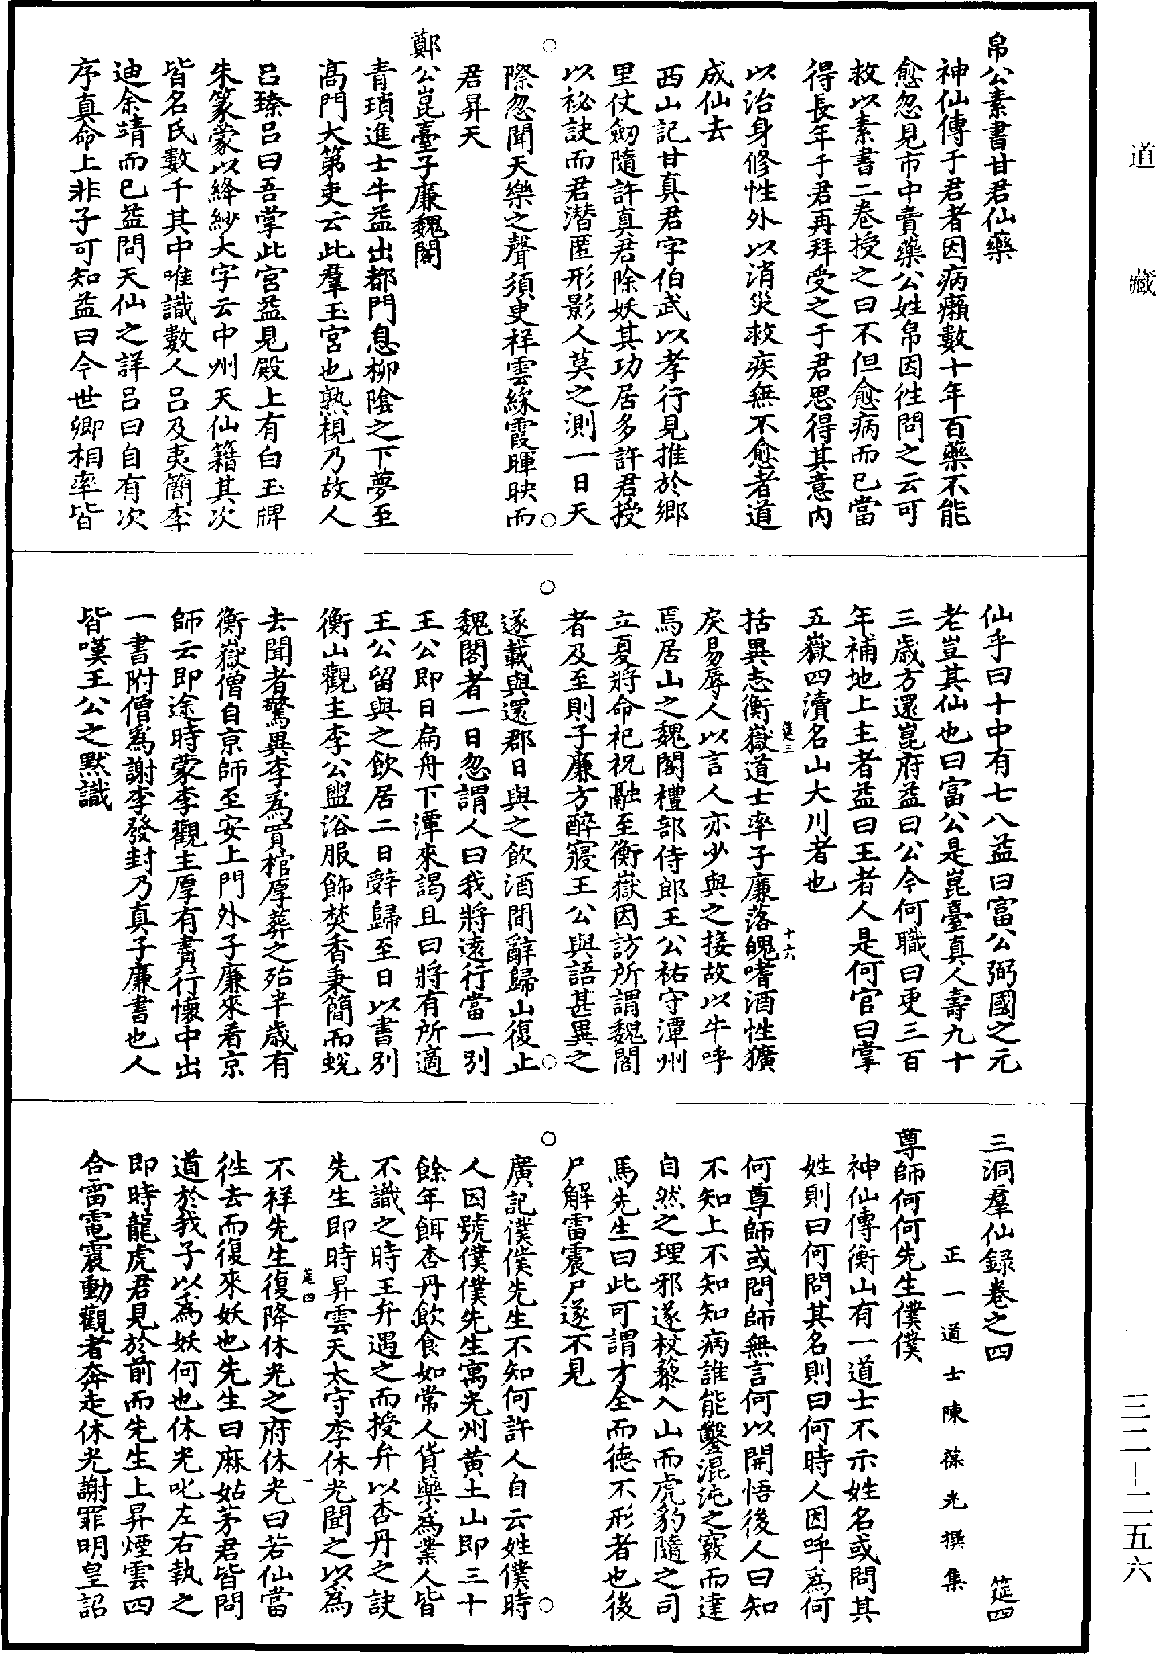 道藏
帛公素書甘君仙藥
神仙傳于君者因病癩數十年百藥不能
愈忽見市中賣藥公姓帛因徃問之云可
救以素書二卷授之曰不但愈病而已當
得長年于君再拜受之于君思得其意內
以治身修性外以消災救疾無不愈者道
成仙去
西山記甘真君字伯武以孝行見推於鄉
里仗劒隨許真君除妖其功居多許君授
以祕訣而君潜匿形影人莫之測一日天
際忽聞天樂之聲須臾祥雲綵霞暉映而
君昇天
鄭公崑臺子廉魏閣
青瑣進士牛益出都門息柳陰之下夢至
高門大第吏云此羣玉宮也熟視乃故人
呂臻呂曰吾掌此宮益見殿上有白玉牌
朱篆蒙以絳紗大字云中州天仙籍其次
皆名氏數千其中唯識數人呂及夷簡李
迪余靖而已益問天仙之詳呂曰自有次
序真命上非子可知益曰今世卿相率皆
仙乎曰十中有七八益曰富公弼國之元
老豈其仙也曰富公是崑臺真人壽九十
三歲方還崑府益曰公今何職曰更三百
年補地上主者益曰王者人是何官曰掌
五嶽四瀆名山大川者也
筵三
十六
括異志衡嶽道士率子廉落魄嗜酒性獷
戾易辱人以言人亦少與之接故以牛呼
焉居山之魏閣禮部侍郎王公祐守潭州
立夏將命祀祝融至衡嶽因訪所謂魏閣
者及至則子廉方醉寢王公與語甚異之
遂載與還郡日與之飲酒閒辭歸山復止
魏閣者一日忽謂人曰我將遠行當一別
王公即日扁舟下潭來謁且曰將有所適
王公留與之飲居二日辭歸至日以書別
衡山觀主李公盥浴服飾焚香秉簡而蛻
去聞者驚異李為買棺厚葬之殆半歲有
衡嶽僧自京師至安上門外子廉來看京
師云即途時蒙李觀主厚有賮行懷中出
一書附僧為謝李發封乃真子廉書也人
皆嘆王公之默識
三洞羣仙錄卷之四
筵四
正一道士陳葆光撰集
尊師何何先生僕僕
神仙傳衡山有一道士不示姓名或問其
姓則曰何問其名則曰何時人因呼為何
何尊師或問師無言何以開悟後人曰知
不知上不知知病誰能鑿混沌之竅而達
自然之理邪遂杖藜入山而虎豹隨之司
馬先生曰此可謂才全而德不形者也後
尸解雷震尸遂不見
廣記僕僕先生不知何許人自云姓僕時
人因號僕僕先生寓光州黄土山即三十
餘年餌杏丹飲食如常人貨藥為業人皆
不識之時王弁遇之而授弁以杏丹之訣
先生即時昇雲天太守李休光聞之以為
筵四
一
不祥先生復降休光之府休光曰若仙當
徃去而復來妖也先生曰麻姑茅君皆問
道於我子以為妖何也休光叱左右執之
即時龍虎君見於前而先生上昇煙雲四
合雷電震動觀者奔走休光謝罪明皇詔
三二－二五六